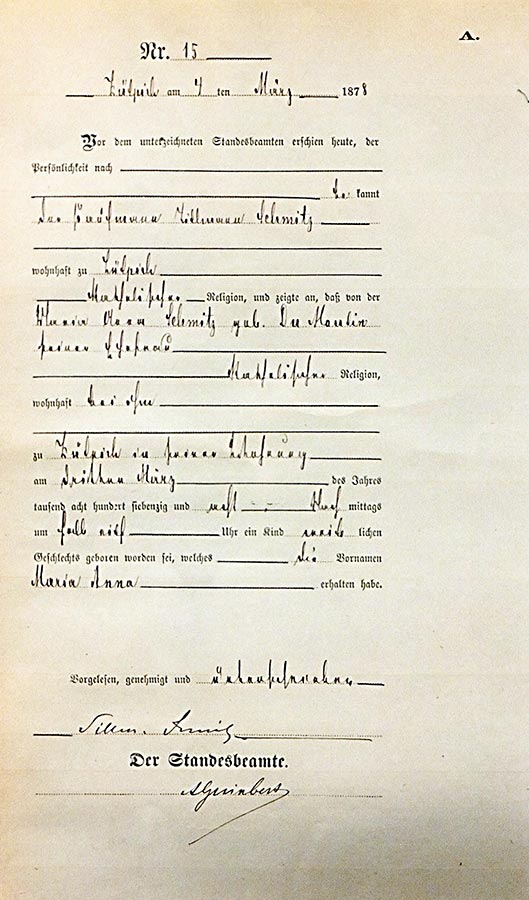 A.
Nr. 15
Zülpich am 7 ten März 1878
Vor dem unterzeichneten Standesbeamten erschien heute, der
Persönlichkeit nach
be kannt
der Kaufmann Tillmann Schmitz
wohnhaft zu Zülpich
katholischer Religion, und zeigte an, daß von der
Maria Anna Schmitz geb. Du Moulin
seiner Ehefrau
katholischer Religion,
wohnhaft bei ihm
zu Zülpich in seiner Wohnung
am dritten März des Jahres
tausend acht hundert siebenzig und acht Nach mittags
um halb acht Uhr ein Kind weib lichen
Geschlechts geboren worden sei, welches die Vornamen
Maria Anna erhalten habe.
Vorgelesen, genehmigt und unterschrieben
Tillm. Schmitz
Der Standesbeamte.